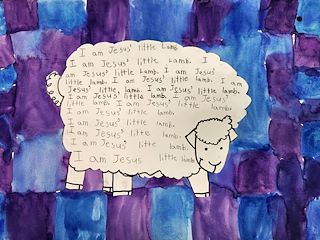 I am Jesus' little Lamb.
I am Jesus' little Lamb. I
am Jesus' little Lamb. I am Jesus'
little Lamb. I am Jesus' little lamb. I am
Jesus' little lamb. I am Jesus' little lamb.
I am Jesus' little lamb. I am Jesus'
little lamb. I am Jesus' little lamb.
I am Jesus' little lamb.
I am Jesus' little lamb.
I am Jesus' litte lamb.
I am Jesus' little lamb.
I am Jesus little lamb.